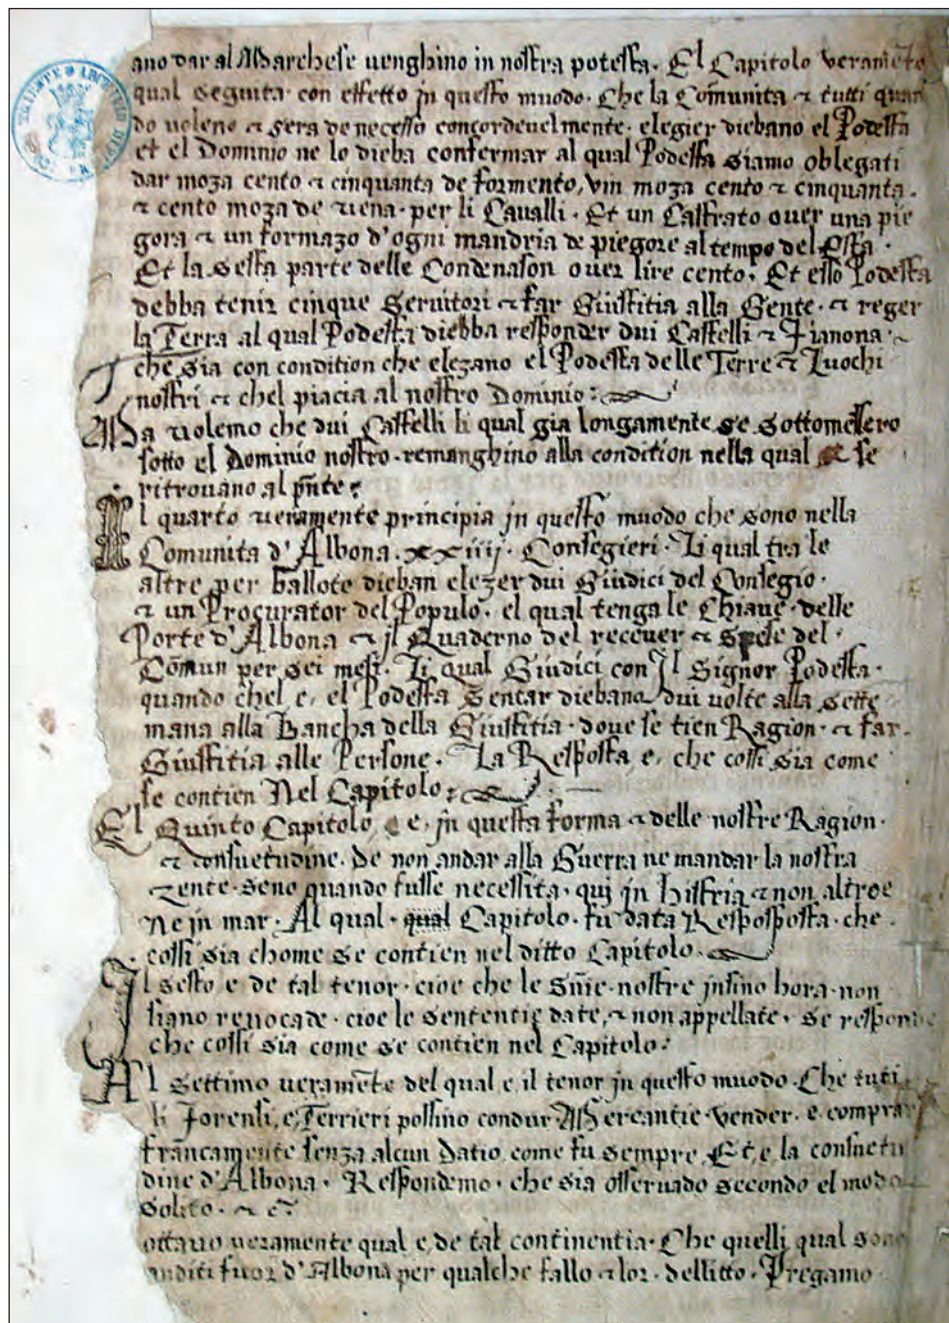 ano dar al Marchese uenghino in nostra potesta. El Capitolo veramēte
qual seguita con effetto jn questo muodo. Che la Comunita & tutti quan
do voleno & sera de necesso concordeuelmente. elegier diebano el Podesta
et el Dominio ne lo dieba confermar al qual Podesta siamo oblegati
dar moza cento & cinquanta de formento, vin moza cento & cinquanta.
& cento moza de viena. per li Caualli. Et un Castrato ouer una pie
gora & un formazo d'ogni mandria de piegore al tempo del Esta.
Et la sesta parte delle Condenason ouer lire cento. Et esso Podesta
debba tenir cinque Seruitori & far Giustitia alla Gente. & reger
la Terra al qual Podesta diebba responder dui Castelli & Fianona.
che sia con condition che elezano el Podesta delle Terre & Luochi
nostri & chel piacia al nostro Dominio:
Ma volemo che dui Castelli li qual gia longamente se sottomessero
sotto el Dominio nostro. remanghino alla condition nella qual se
ritrouano al pn̄te:
Il quarto veramente principia jn questo muodo che sono nella
Comunita d'Albona. xxiiij. Consegieri. Li qual fra le
altre per ballote dieban elezer dui Giudici del Consegio.
& un Procurator del Populo. el qual tenga le Chiaue. delle
Porte d'Albona & jl Quaderno del receuer & spese del.
Com̄un per sei mesi. Li qual Giudici con Jl Signor Podesta.
quando chel e, el Podesta Sentar diebano dui volte alla sette
mana alla Bancha della Giustitia. doue se tien Ragion. & far.
Giustitia alle Persone. La Resposta e, che cossi sia come
se contien Nel Capitolo:
El Quinto Capitolo, e, jn questa forma & delle nostre Ragion.
& consuetudine. De non andar alla Guerra ne mandar la nostra
zente. seno quando fusse necessita. quj jn histria & non altroe
Ne jn mar. Al qual. qual Capitolo. fu data Resposposta. che.
cossi sia chome se contien nel ditto Capitolo.
Il sesto e de tal tenor. cioe che le Sn̄ie. nostre jnsino hora. non
siano reuocade. cioe le sententie date, & non appellate. se responde
che cossi sia come se contien nel Capitolo:
Al settimo veramēte del qual e il tenor jn questo muodo. Che tuti
li Forensi, e, Terrieri possino condur Mercantie. vender. e comprar
francamente senza alcun Datio come fu sempre, Et, e la consuetu
dine d'Albona. Respondemo. che sia osseruado secondo el modo
solito. & c̄.
ottauo veramente qual e, de tal continentia. Che quelli qual sono
anditi fuor d'Albona per qualche fallo & lor. dellitto. Pregamo